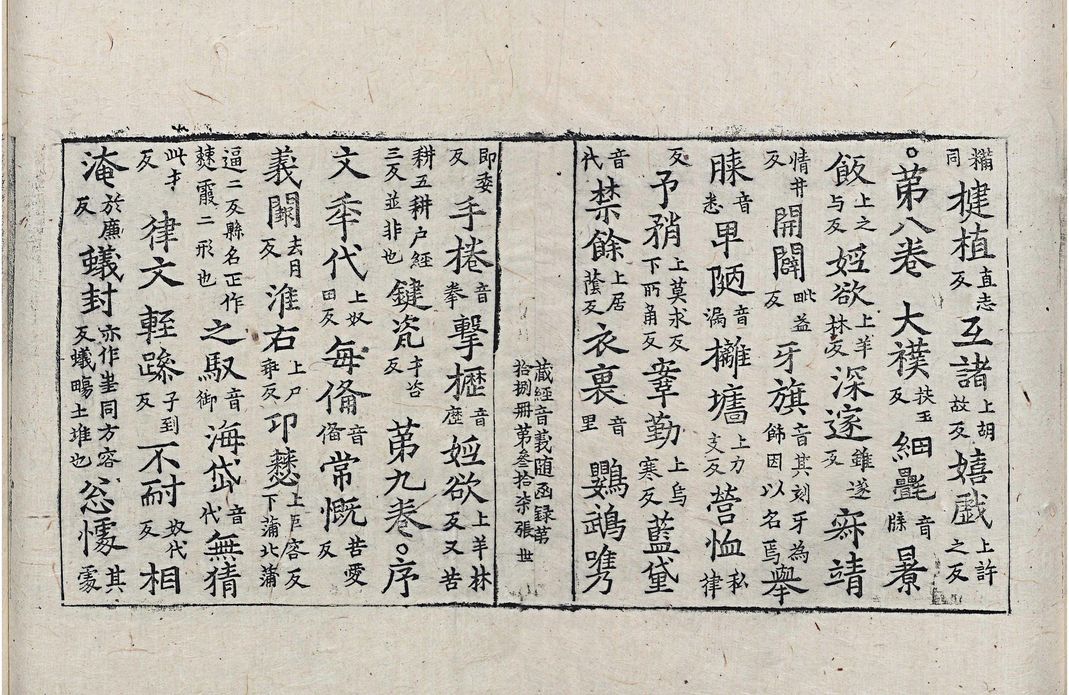 䊤同揵植直志反互諸上胡故反嬉戲上許之反
○第八卷　大襆扶玉反細㲲音牒㬌
飯上之与反婬欲上羊林反深邃雖遂反寐靖
情井反開闢毗益反牙旗音其刻牙為飾因以名焉舉
䐑音悉卑陋音漏㰚墻上力支反營恤私律
反予矟上莫求反下所角反鞌勤上烏寒反藍黛
音代禁餘上居蔭反衣裏音里鸚鵡嶲
藏經音義随函録第
拾捌册第叁拾柒張　世
即委反手捲音拳擊攊音歷婬欲上羊林反又苦
耕五耕户經三反並非也鍵瓷才咨反第九卷○序
文秊代上奴田反每俻音俻常慨苦愛反
義闌去月反淮右上户乖反邛㯿上巨容反下蒲北蒲
逼二反縣名正作僰霞二形也之馭音御海岱音代無猜
此才反律文輕躁子到反不耐奴代反相
淹於廉反蟻封亦作㞷同方容反蟻場土堆也忩懅其䨥